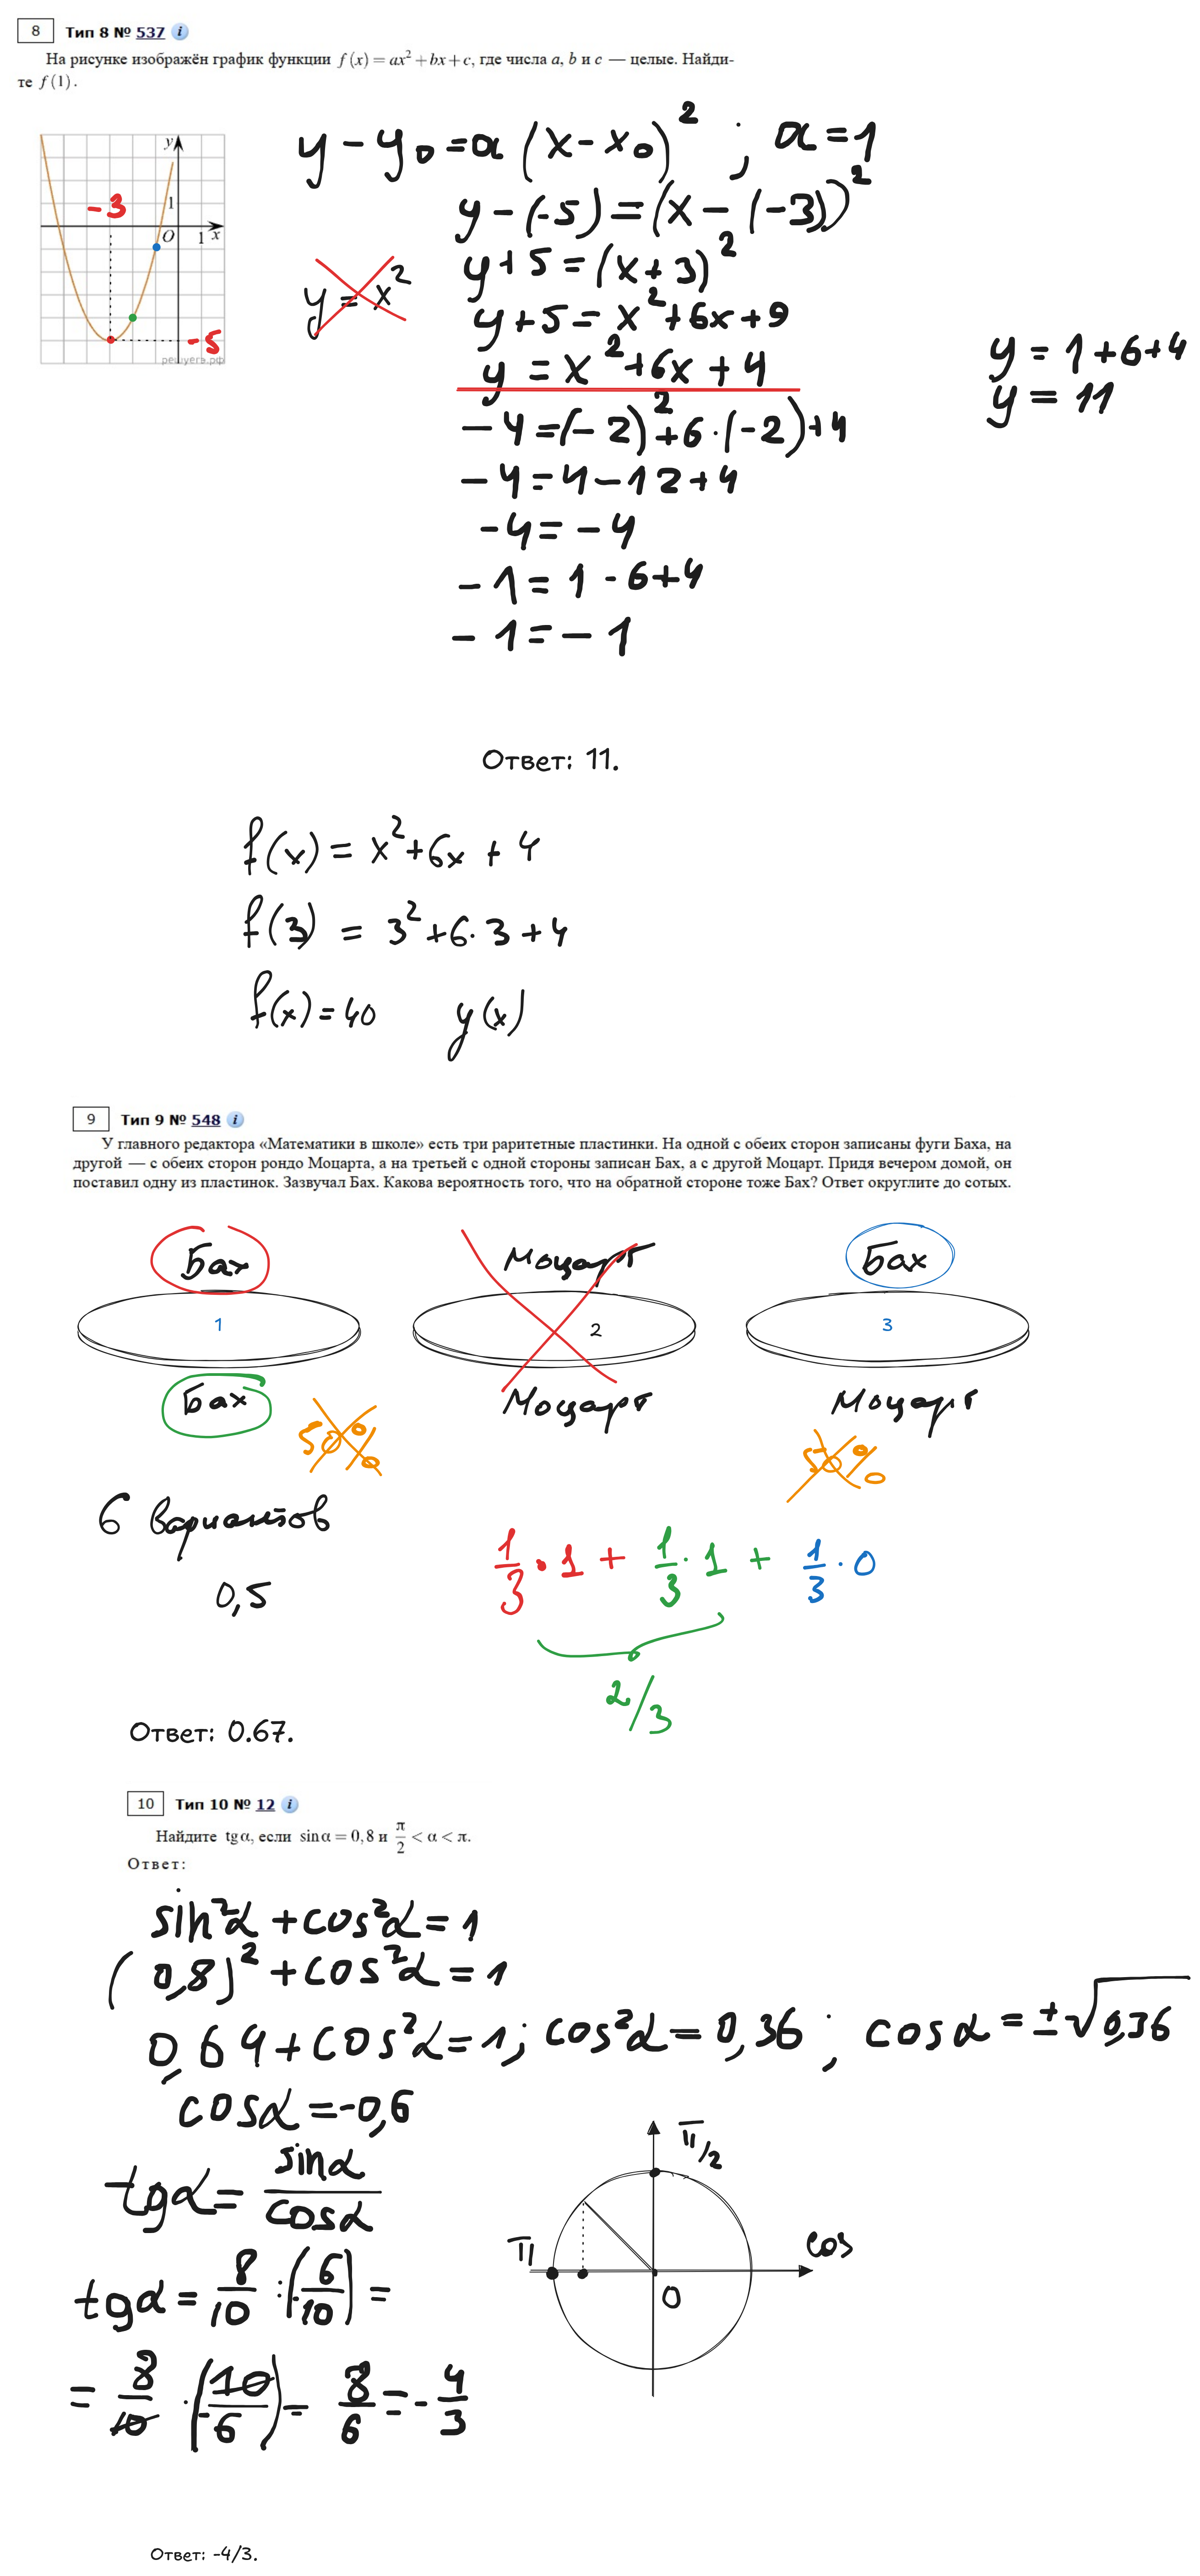 8 Тип 8 № 537 i
На рисунке изображён график функции f(x) = ax² + bx + c, где числа a, b и c — целые. Найди-
те f(1).
y
1
O 1 x
-3
-5
решуегэ.рф
y - y₀ = a(x - x₀)²; a = 1
y - (-5) = (x - (-3))²
y + 5 = (x + 3)²
y = x²
y + 5 = x² + 6x + 9
y = x² + 6x + 4
y = 1 + 6 + 4
y = 11
-4 = (-2)² + 6·(-2) + 4
-4 = 4 - 12 + 4
-4 = -4
-1 = 1 - 6 + 4
-1 = -1
Ответ: 11.
f(x) = x² + 6x + 4
f(3) = 3² + 6·3 + 4
f(x) = 40 y(x)
9 Тип 9 № 548 i
У главного редактора «Математики в школе» есть три раритетные пластинки. На одной с обеих сторон записаны фуги Баха, на
другой — с обеих сторон рондо Моцарта, а на третьей с одной стороны записан Бах, а с другой Моцарт. Придя вечером домой, он
поставил одну из пластинок. Зазвучал Бах. Какова вероятность того, что на обратной стороне тоже Бах? Ответ округлите до сотых.
Бах Моцарт Бах
1 2 3
Бах Моцарт Моцарт
50% 50%
6 вариантов
1/3 · 1 + 1/3 · 1 + 1/3 · 0
0,5
2/3
Ответ: 0.67.
10 Тип 10 № 12 i
Найдите tg α, если sin α = 0,8 и π/2 < α < π.
Ответ:
sin²α + cos²α = 1
(0,8)² + cos²α = 1
0,64 + cos²α = 1; cos²α = 0,36; cosα = ±√0,36
cosα = -0,6
tgα = sinα/cosα
π/2
π
cos
0
tgα = 8/10 : (6/-10) =
= 8/10 · (10/-6) = 8/6 = -4/3
Ответ: -4/3.